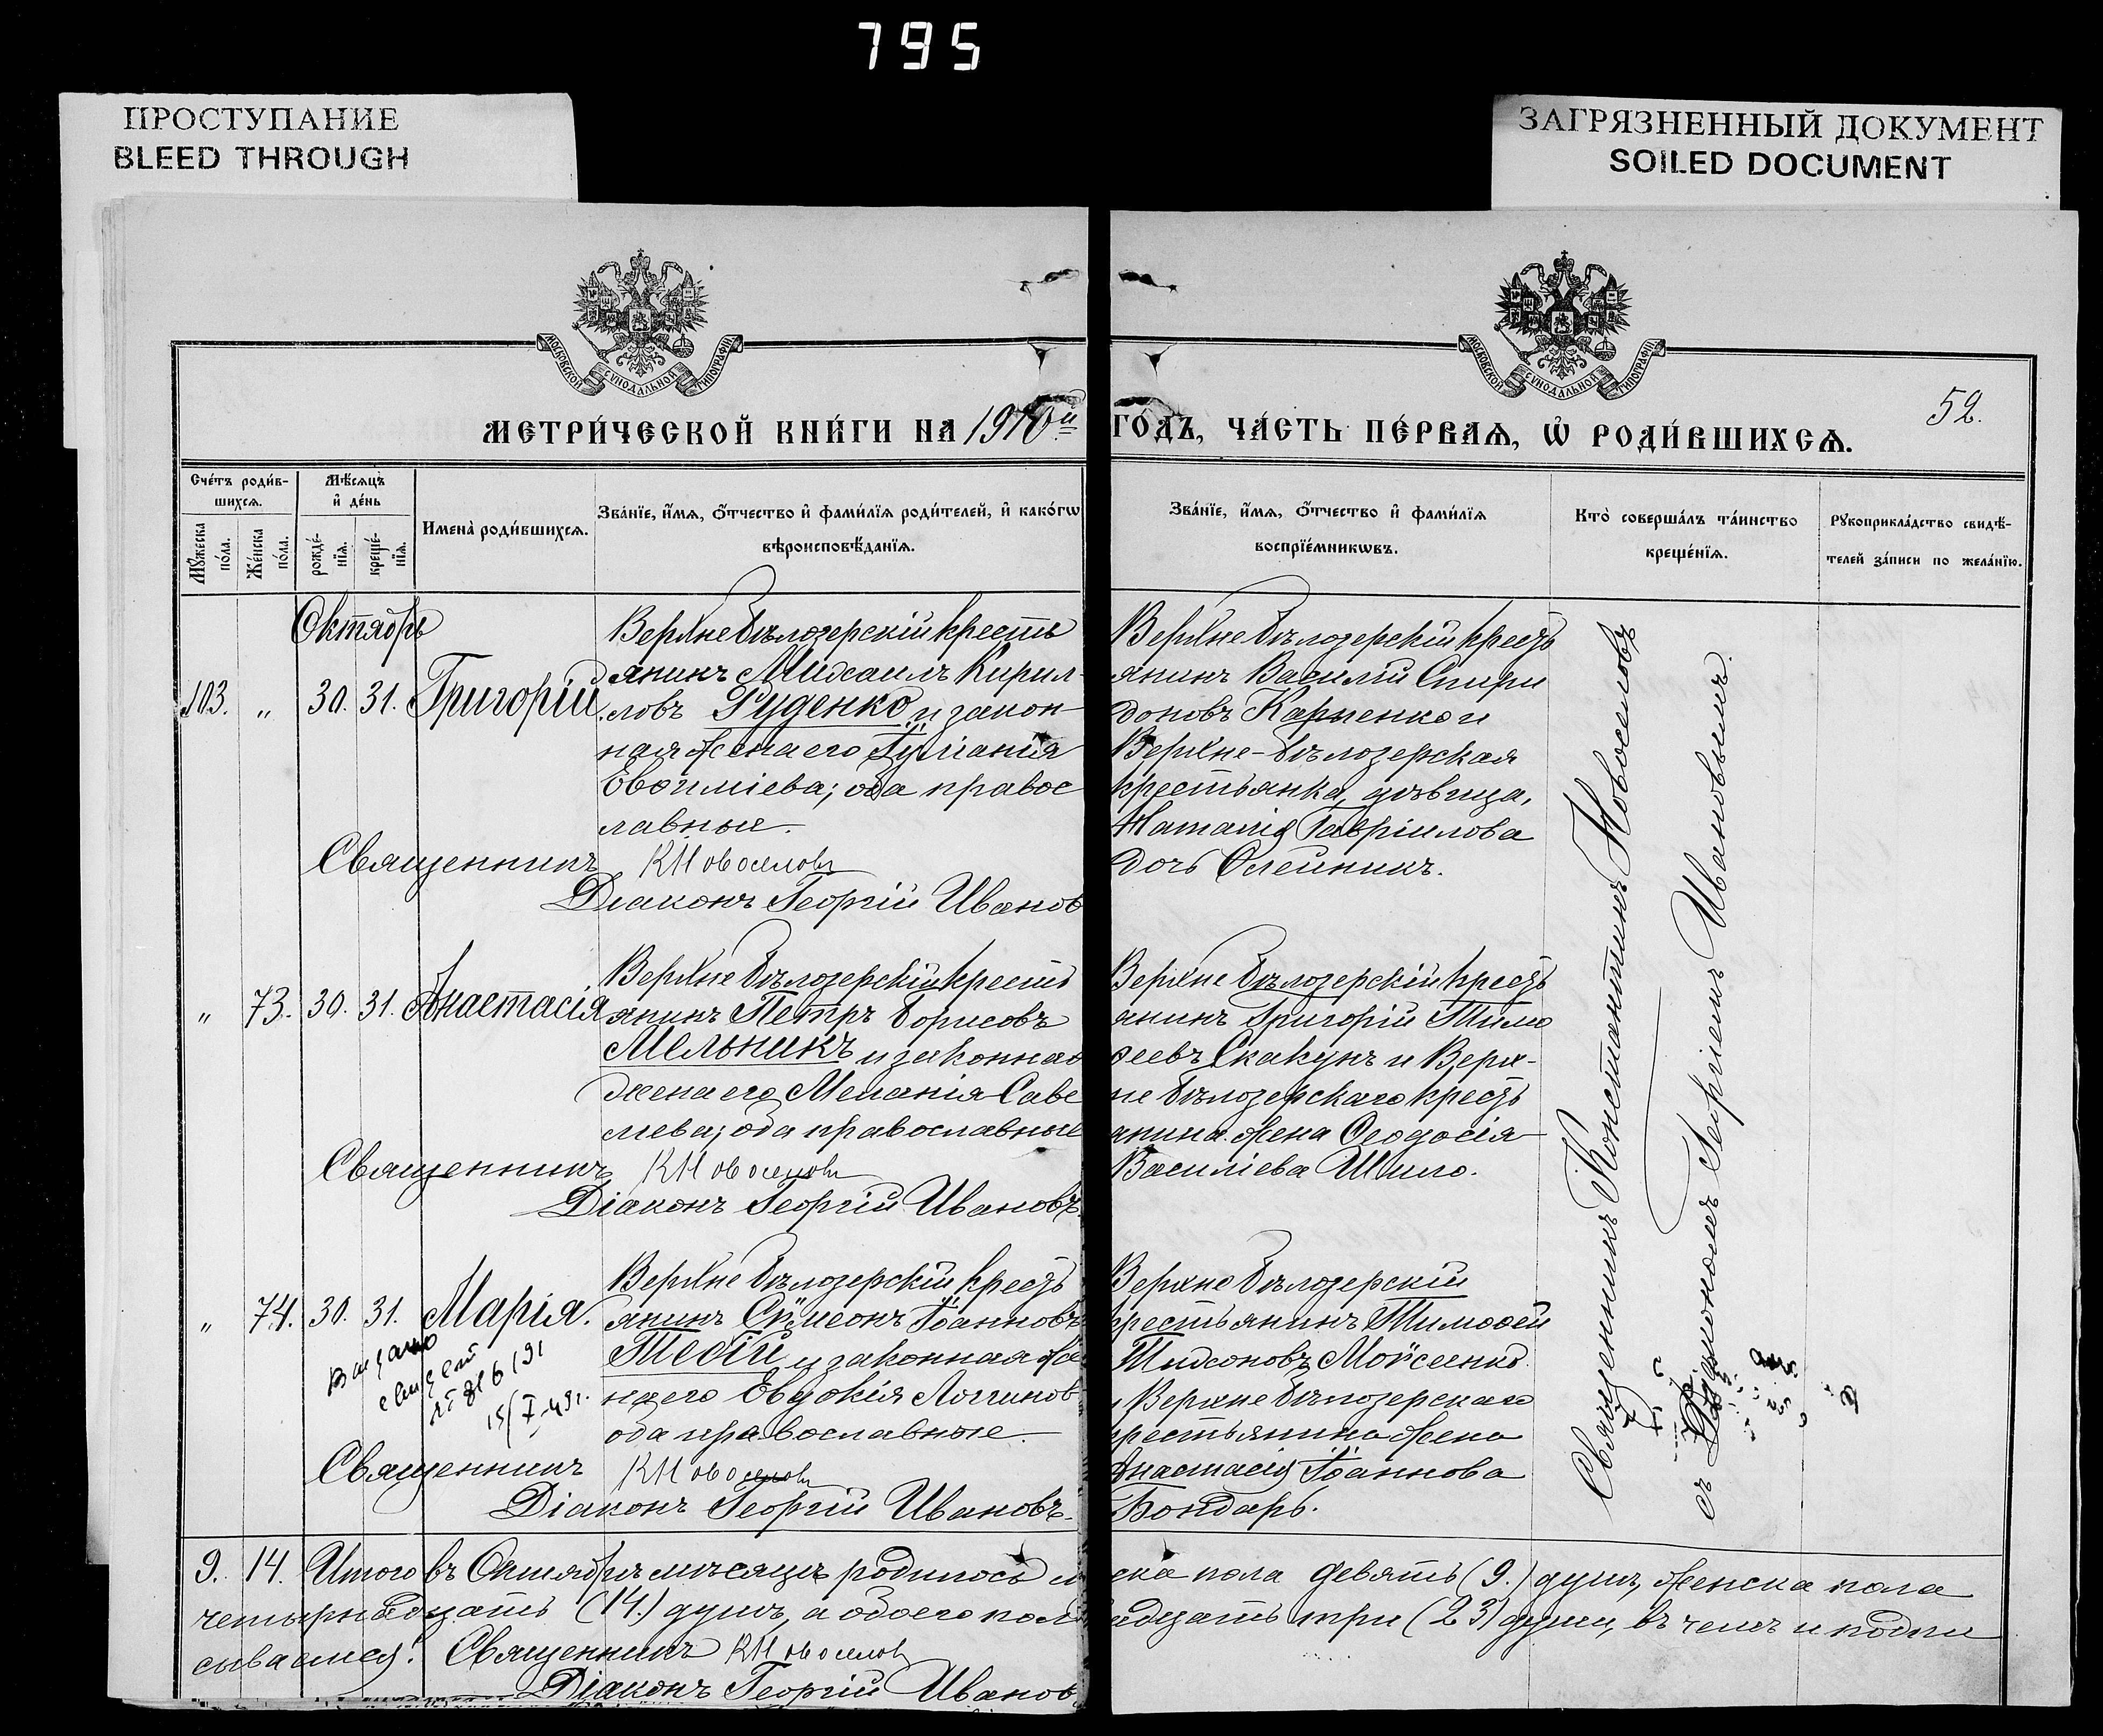 795
ПРОСТУПАНИЕ
BLEED THROUGH
ЗАГРЯЗНЕННЫЙ ДОКУМЕНТ
SOILED DOCUMENT
МОСКОВСКОЙ СѴНОДАЛЬНОЙ ТИПОГРАФІИ
МОСКОВСКОЙ СѴНОДАЛЬНОЙ ТИПОГРАФІИ
52.
МЕТРИ́ЧЕСКОЙ КНИ́ГИ НА 1910й ГО́ДЪ, ЧА́СТЬ ПЕ́РВАѦ, Ѡ҆ РОДИ́ВШИХСѦ.
Сче́тъ роди́в-
шихсѧ.
Мꙋ́жеска по́ла.
Же́нска по́ла.
Мѣ́сѧцъ
и҆ де́нь
рожде́-нїѧ.
креще́-нїѧ.
Имена̀ роди́вшихсѧ.
Зва́нїе, и҆́мѧ, ѻ҆́тчество и҆ фами́лїѧ роди́телей, и҆ како́гѡ
вѣроисповѣ́данїѧ.
Зва́нїе, и҆́мѧ, ѻ҆́тчество и҆ фами́лїѧ
воспрїе́мникѡвъ.
Кто̀ соверша́лъ та́инство
креще́нїѧ.
Рꙋкоприкла́дство свидѣ́-
телей за́писи по жела́нїю.
Октябрь
103. „ 30. 31. Григорій.
Верхнебѣлозерскій кресть
янинъ Михаилъ Кирил-
ловъ Руденко и закон-
ная жена его Іуліанія
Евѳиміева; оба правос
лавные.
Священникъ КНовоселовъ
Діаконъ Георгій Иванов
Верхнебѣлозерскій крест
янинъ Василій Спири
доновъ Карпенко и
Верхне-бѣлозерская
крестьянка, дѣвица,
Наталія Гавріилова
дочь Олейникъ.
„ 73. 30. 31. Анастасія
Верхнебѣлозерскій крестъ
янинъ Петръ Борисовъ
Мельникъ и законная
жена его Меланія Саве
лева; оба православные
Священникъ КНовоселовъ
Діаконъ Георгій Ивановъ.
Верхнебѣлозерскій крест
янинъ Григорій Тимо
ѳеевъ Скакунъ и Верх-
небѣлозерскаго крест
янина жена Ѳеодосія
Василіева Шило.
„ 74. 30. 31. Марія.
Выдано
свидет
15/I-49г.
Верхнебѣлозерскій крест
янинъ Сѵмеонъ Іоанновъ
и законная же
на его Евдокія Логгинов
оба православные.
Священникъ КНовоселовъ
Діаконъ Георгій Ивановъ.
Верхнебѣлозерскій
крестьянинъ Тимоѳей
Тихоновъ Моисеенко
и Верхнебѣлозерскаго
крестьянина жена
Анастасія Іоаннова
Бондарь.
Священникъ Константинъ Новоселовъ
съ Діакономъ Георгіемъ Ивановымъ.
9. 14. Итого въ Октябрѣ мѣсяцѣ родилось м ска пола девять (9.) душъ, женска пола
четырнадцать (14.) душъ, а обоего пола адцать три (23) души, въ чемъ и подпи
сываемся: Священникъ КНовоселов
Діаконъ Георгій Иванов